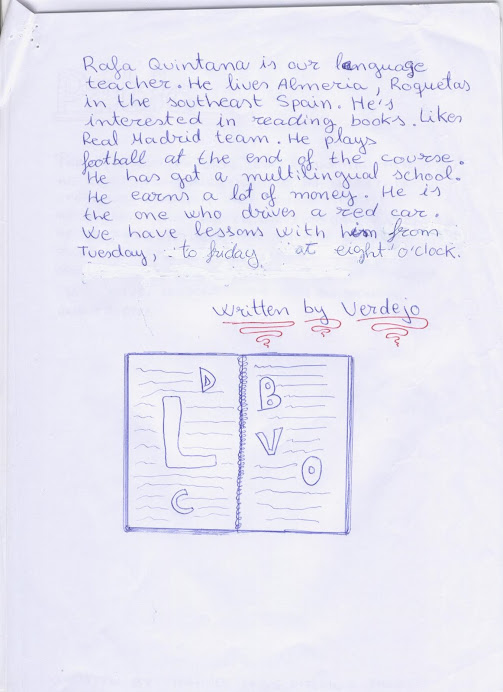 Rafa Quintana is our language
teacher. He lives Almeria, Roquetas
in the southeast Spain. He's
interested in reading books. Likes
Real Madrid team. He plays
football at the end of the course.
He has got a multilingual school.
He earns a lot of money. He is
the one who drives a red car.
We have lessons with him from
Tuesday, to friday at eight o'clock.
Written by Verdejo
D
L
C
B
V
O